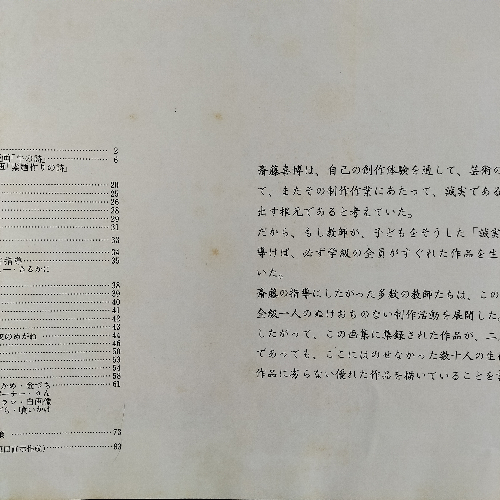 2
6
素麺作りの詩」
20
25
26
28
29
31
33
34
35
38
39
40
41
42
43
44
46
50
53
54
58
61
自画像
73
83
斎藤喜博は、自己の創作体験を通して、芸術の
て、またその制作作業にあたって、誠実である
出す根元であると考えていた。
だから、もし教師が、子どもをそうした「誠実
導けば、必ず学級の全員がすぐれた作品を生
いた。
斎藤の指導にしたがった多数の教師たちは、この
全級一人のぬけおちのない制作活動を展開した。
したがって、この画集に集録された作品が、二、
であっても、ここにはのせなかった数十人の生徒
作品に劣らない優れた作品を描いていることを